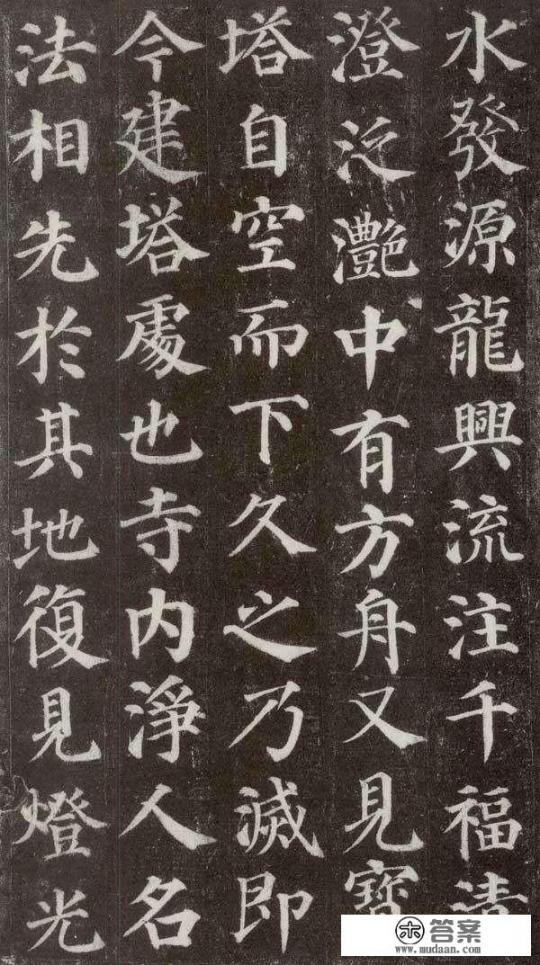 水發源龍興流注千福清
澄泛灔中有方舟又見寶
塔自空而下久之乃滅即
今建塔處也寺内淨人名
法相先於其地復見燈光
答案
www.mudaan.com